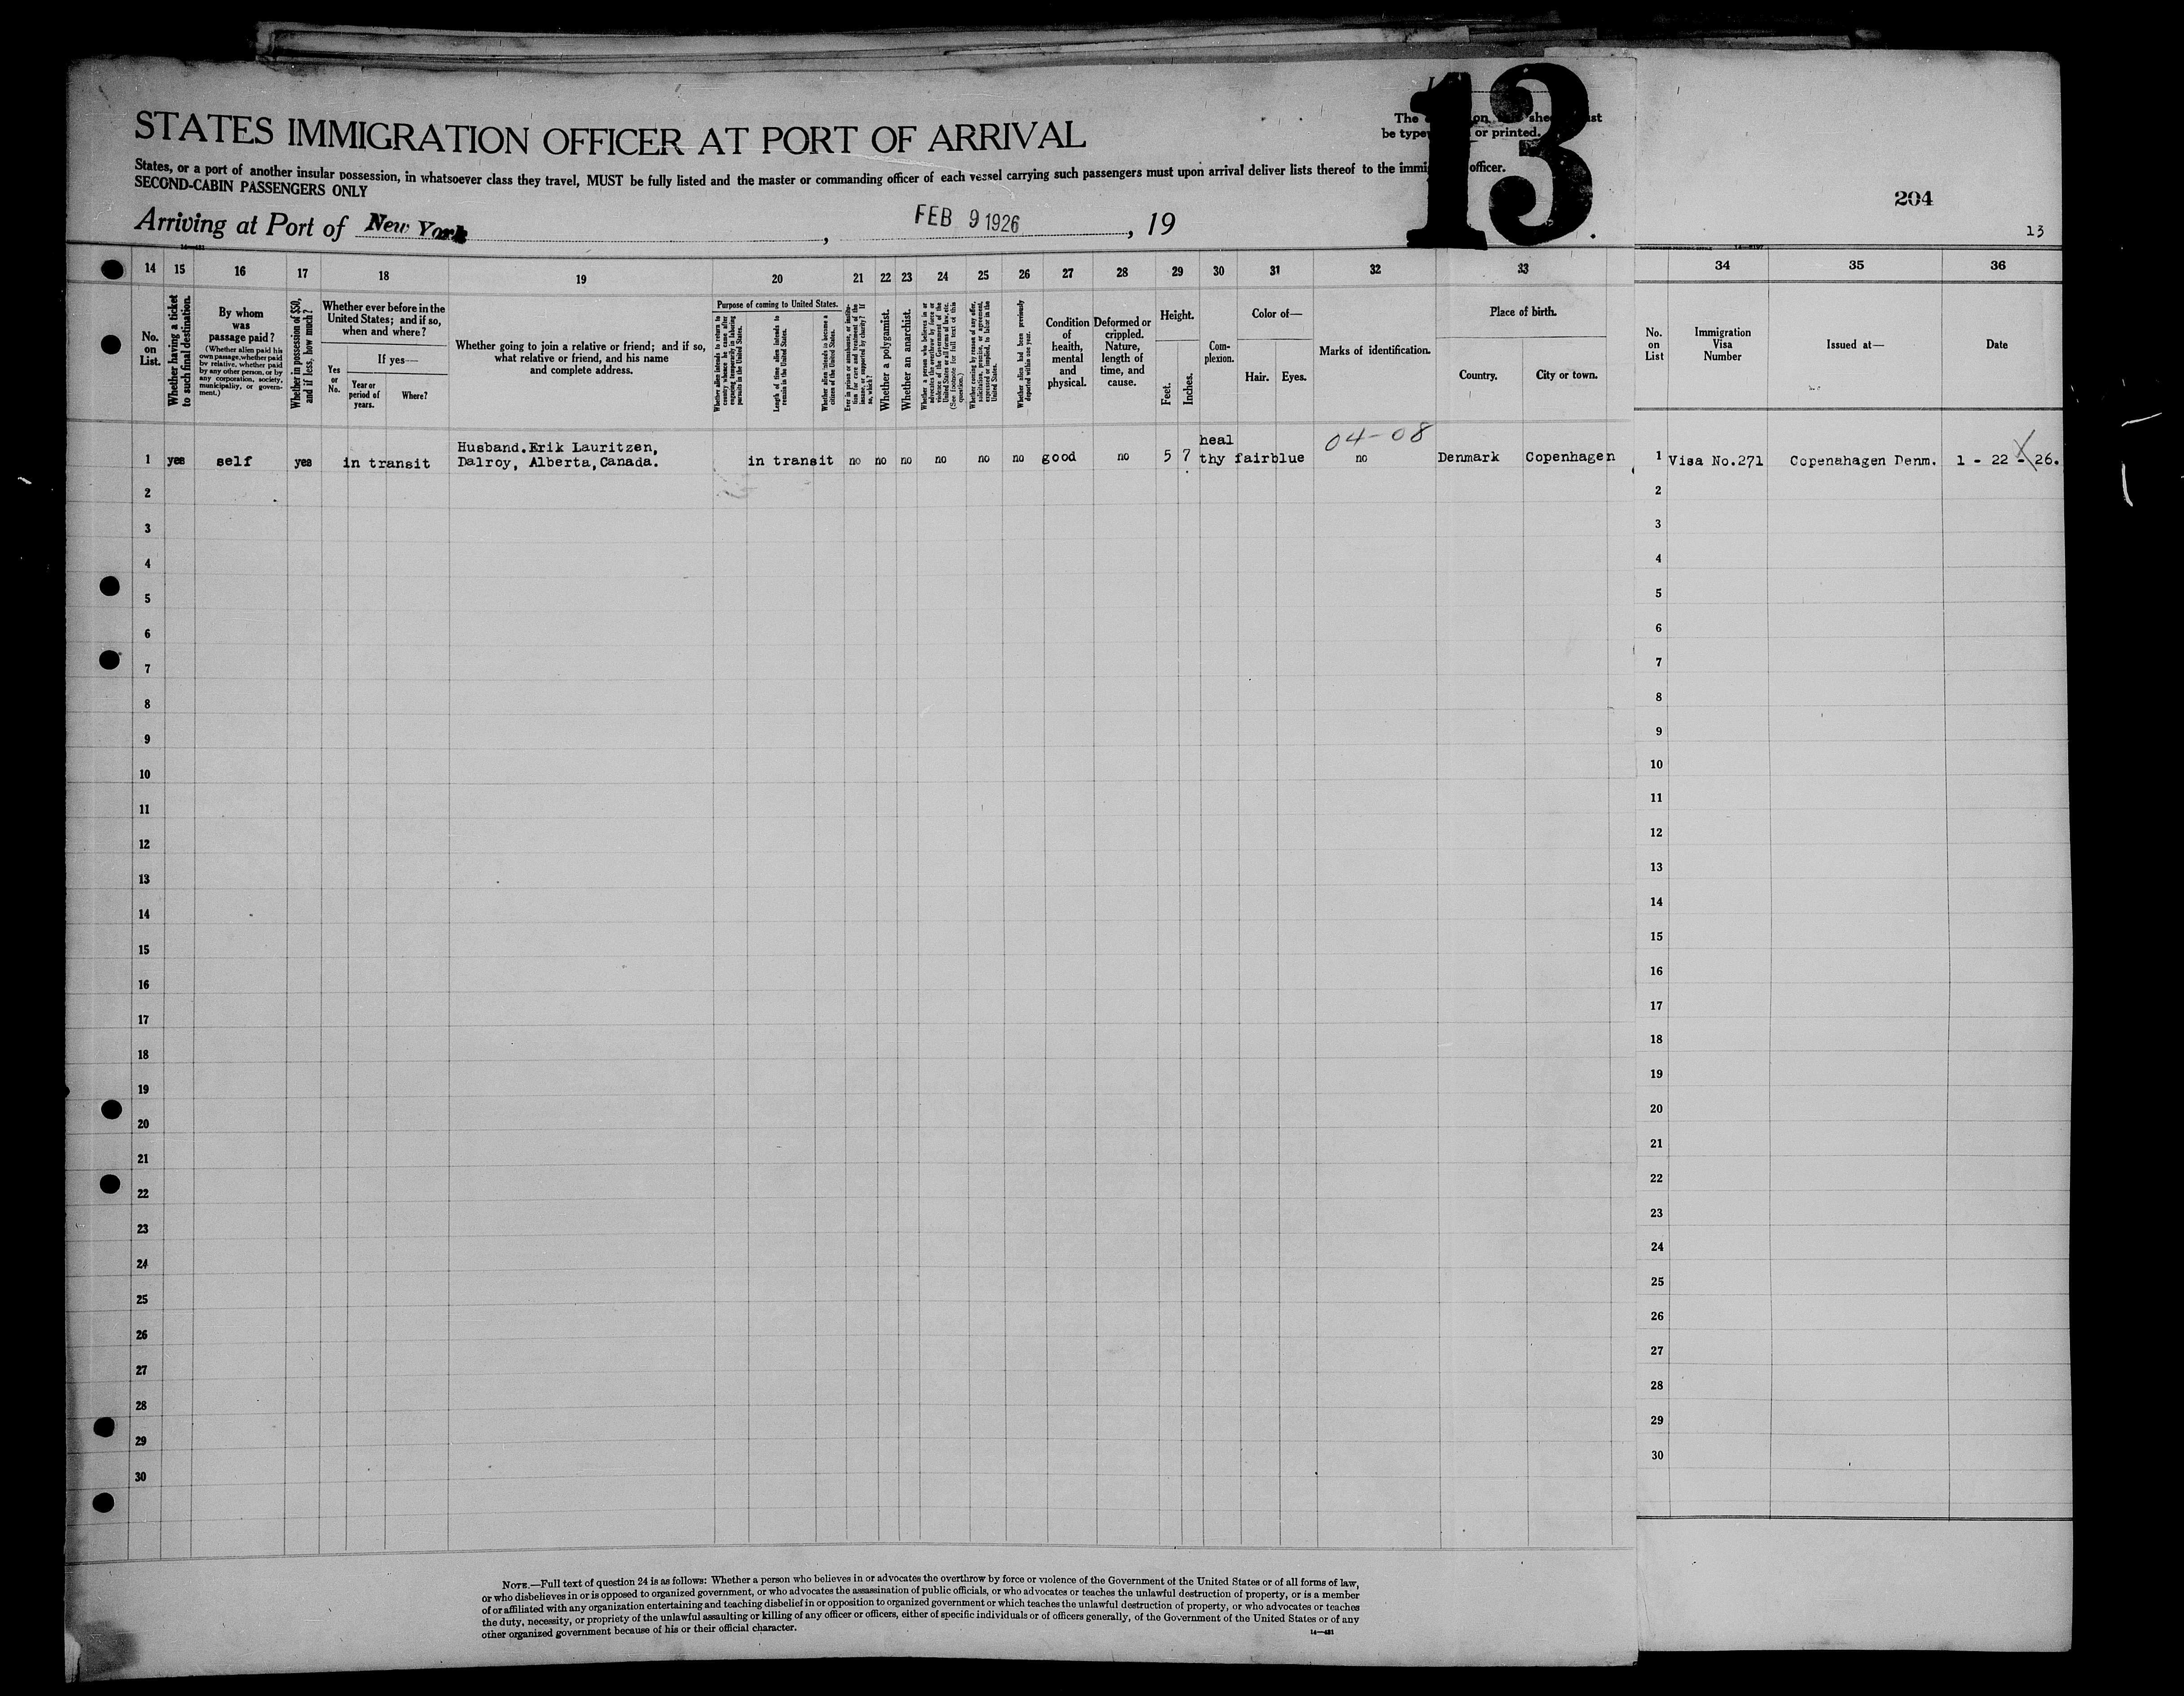 13
The on this sheet must
be type or printed.
STATES IMMIGRATION OFFICER AT PORT OF ARRIVAL
States, or a port of another insular possession, in whatsoever class they travel, MUST be fully listed and the master or commanding officer of each vessel carrying such passengers must upon arrival deliver lists thereof to the immi officer.
SECOND-CABIN PASSENGERS ONLY
Arriving at Port of New York, FEB 9 1926, 19
204
13
14 15 16 17 18 19 20 21 22 23 24 25 26 27 28 29 30 31 32 33 34 35 36
No. on List.
Whether having a ticket to such final destination.
By whom was passage paid?
(Whether alien paid his own passage, whether paid by relative, whether paid by any other person, or by any corporation, society, municipality, or government.)
Whether in possession of $50, and if less, how much?
Whether ever before in the United States; and if so, when and where?
Yes or No.
If yes—
Year or period of years.
Where?
Whether going to join a relative or friend; and if so, what relative or friend, and his name and complete address.
Purpose of coming to United States.
Whether alien intends to return to country whence he came after engaging temporarily in laboring pursuits in the United States.
Length of time alien intends to remain in the United States.
Whether alien intends to become a citizen of the United States.
Ever in prison or almshouse, or institution for care and treatment of the insane, or supported by charity? If so, which?
Whether a polygamist.
Whether an anarchist.
Whether a person who believes in or advocates the overthrow by force or violence of the Government of the United States or all forms of law, etc. (See footnote for full text of this question.)
Whether coming by reason of any offer, solicitation, promise, or agreement, expressed or implied, to labor in the United States.
Whether alien had been previously deported within one year.
Condition of health, mental and physical.
Deformed or crippled. Nature, length of time, and cause.
Height.
Feet.
Inches.
Complexion.
Color of—
Hair.
Eyes.
Marks of identification.
Place of birth.
Country.
City or town.
No. on List
Immigration Visa Number
Issued at—
Date
04-08
1 yes self yes in transit Husband.Erik Lauritzen, Dalroy, Alberta,Canada. in transit no no no no no no good no 5 7 healthy fair blue no Denmark Copenhagen 1 Visa No.271 Copenahagen Denm. 1 - 22 - 26.
2 2
3 3
4 4
5 5
6 6
7 7
8 8
9 9
10 10
11 11
12 12
13 13
14 14
15 15
16 16
17 17
18 18
19 19
20 20
21 21
22 22
23 23
24 24
25 25
26 26
27 27
28 28
29 29
30 30
NOTE.—Full text of question 24 is as follows: Whether a person who believes in or advocates the overthrow by force or violence of the Government of the United States or of all forms of law,
or who disbelieves in or is opposed to organized government, or who advocates the assassination of public officials, or who advocates or teaches the unlawful destruction of property, or is a member
of or affiliated with any organization entertaining and teaching disbelief in or opposition to organized government or which teaches the unlawful destruction of property, or who advocates or teaches
the duty, necessity, or propriety of the unlawful assaulting or killing of any officer or officers, either of specific individuals or of officers generally, of the Government of the United States or of any
other organized government because of his or their official character.
14—481